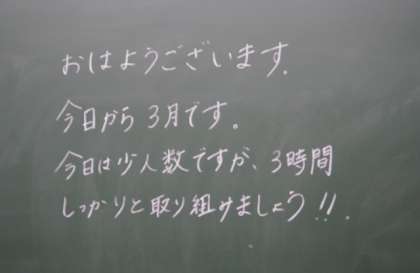 おはようございます.
今日から3月です。
今日は少人数ですが、3時間
しっかりと取り組みましょう!!.